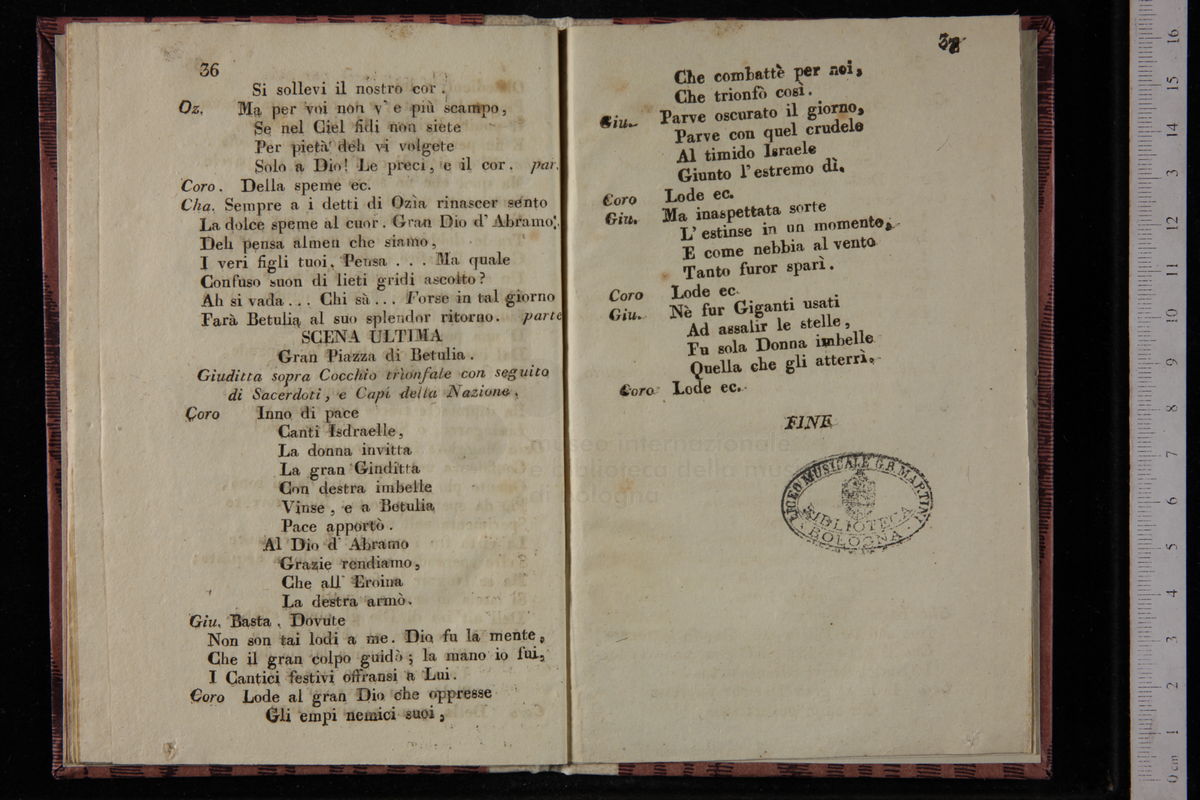 36
Si sollevi il nostro cor.
Oz. Ma per voi non v'e più scampo,
Se nel Ciel fidi non siete
Per pietà deh vi volgete
Solo a Dio! Le preci, e il cor. par.
Coro. Della speme ec.
Cha. Sempre a i detti di Ozia rinascer sento
La dolce speme al cuor. Gran Dio d'Abramo!
Deh pensa almen che siamo,
I veri figli tuoi, Pensa . . . Ma quale
Confuso suon di lieti gridi ascolto?
Ah si vada . . . Chi sà . . . Forse in tal giorno
Farà Betulia al suo splendor ritorno. parte
SCENA ULTIMA
Gran Piazza di Betulia.
Giuditta sopra Cocchio trionfale con seguito
di Sacerdoti, e Capi della Nazione,
Coro Inno di pace
Canti Isdraelle,
La donna invitta
La gran Ginditta
Con destra imbelle
Vinse, e a Betulia
Pace apportò.
Al Dio d' Abramo
Grazie rendiamo,
Che all' Eroina
La destra armò.
Giu. Basta, Dovute
Non son tai lodi a me. Dio fu la mente,
Che il gran colpo guidò; la mano io fui,
I Cantici festivi offransi a Lui.
Coro Lode al gran Dio che oppresse
Gli empi nemici suoi,
Che combattè per noi,
Che trionfò così.
Giu. Parve oscurato il giorno,
Parve con quel crudele
Al timido Israele
Giunto l'estremo dì.
Coro Lode ec.
Giu. Ma inaspettata sorte
L'estinse in un momento,
E come nebbia al vento
Tanto furor sparì.
Coro Lode ec.
Giu. Nè fur Giganti usati
Ad assalir le stelle,
Fu sola Donna imbelle
Quella che gli atterrì.
Coro Lode ec.
FINE
LICEO MUSICALE G.B. MARTINI
BIBLIOTECA
BOLOGNA
museo internazionale
e biblioteca della musica
di bologna